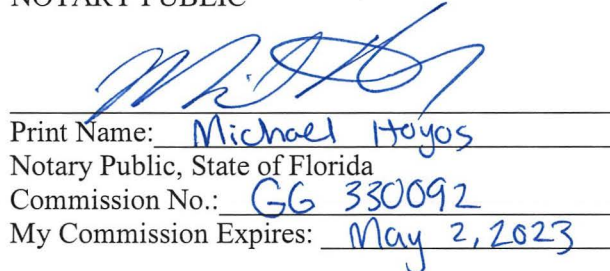 NOTARY PUBLIC
Print Name: Michael Hoyos
Notary Public, State of Florida
Commission No.: GG 330092
My Commission Expires: May 2, 2023